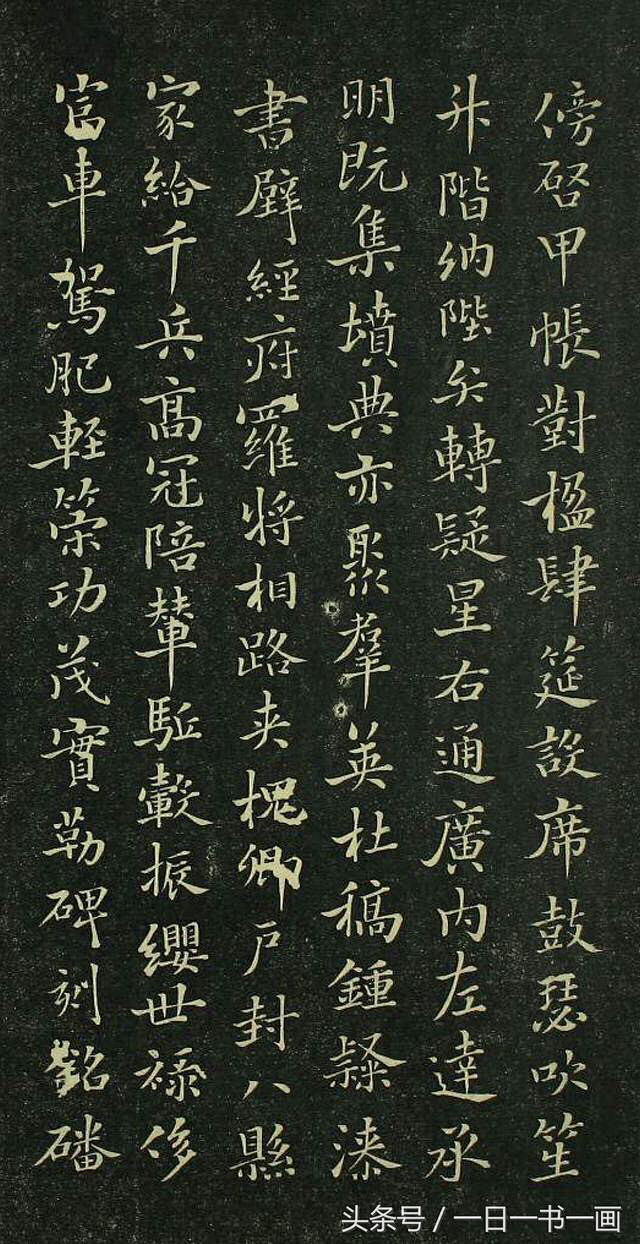 傍啓甲帳對楹肆筵設席鼓瑟吹笙
升階納陛弁轉疑星右通廣内左達承
明既集墳典亦聚羣英杜稿鍾隸漆
書壁經府羅將相路夹槐卿户封八縣
家給千兵髙冠陪輦駈轂振纓世禄侈
富車駕肥輕策功茂實勒碑刻銘磻
头条号 / 一日一书一画